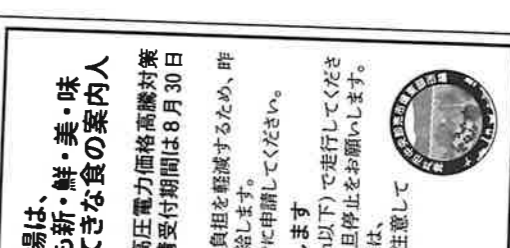 場は、
も新・鮮・美・味
てきな食の案内人
高圧電力価格高騰対策
請受付期間は8月30日
負担を軽減するため、昨
給します。
に申請してください。
します
以下)で走行してくださ
旦停止をお願いします。
は、
注意して